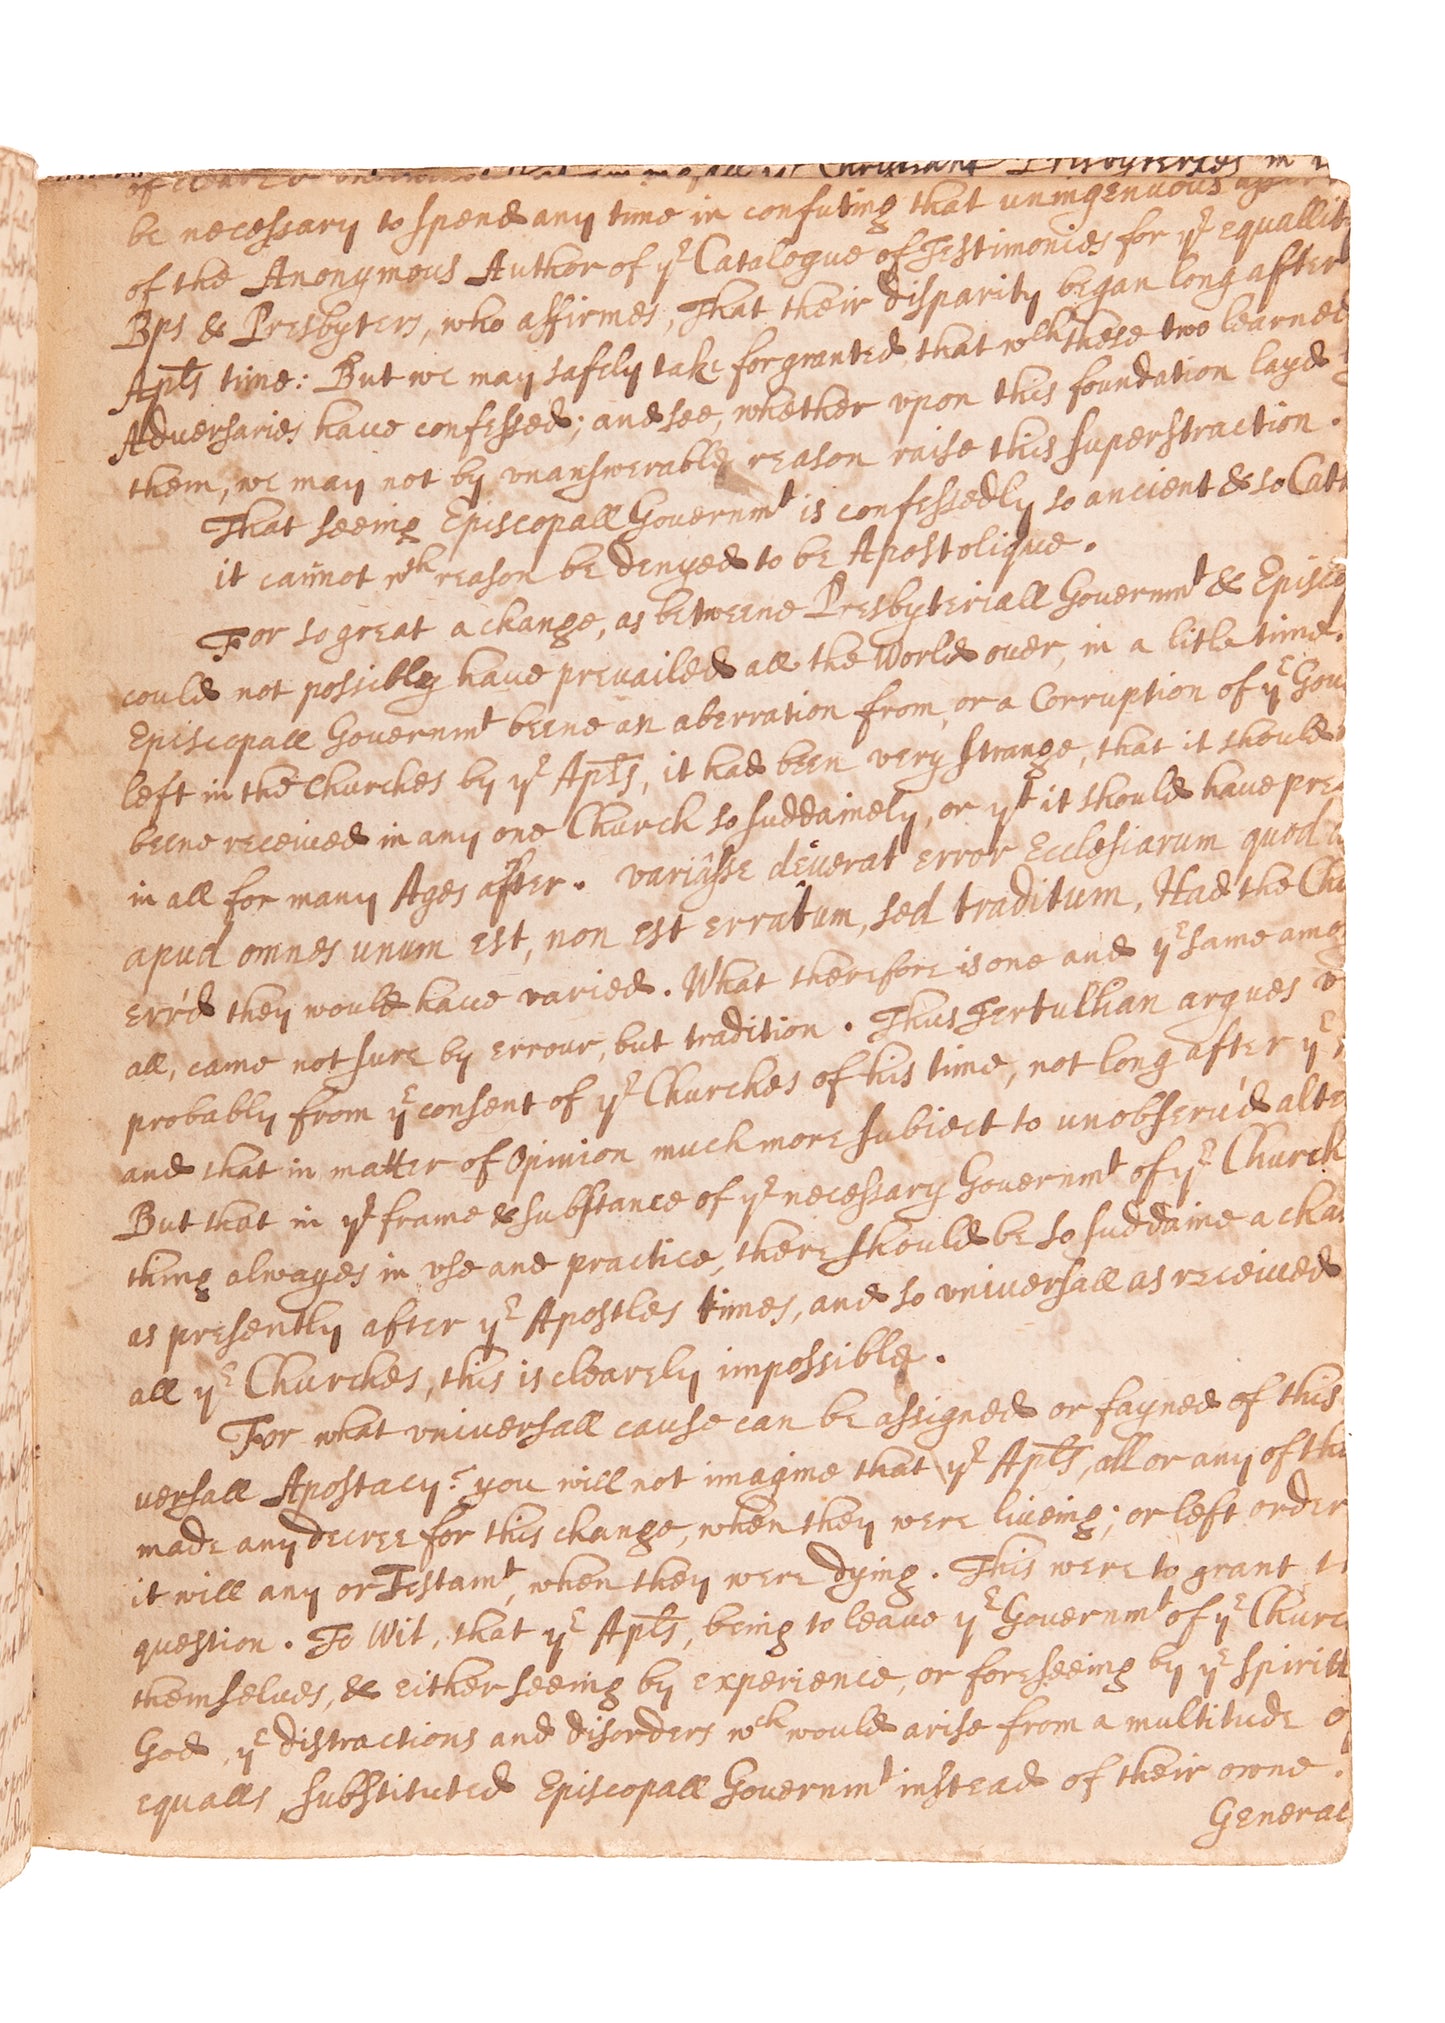 Christiana Presbyteries in
be necessary to spend any time in confuting that uningenuous
of the Anonymous Author of yᵉ Catalogue of Testimonies for yᵉ equallit
Bps & Presbyters, who affirmes, That their disparity began long after
Apłs time: But we may safely take for granted that wᶜʰ these two learned
Adversaries haue confessed; and see, whether vpon this foundation layd
them, we may not by vnanswerable reason raise this superstraction.
That seeing Episcopall Governmᵗ is confessedly so ancient & so Cath
it cañnot wᵗʰ reason be denyed to be Apostolique.
For so great a change, as betweene Presbyteriall Governmᵗ & Episco
could not possibley haue prevailed all the World over, in a litle time.
Episcopall Governmᵗ beene an aberration from, or a Corruption of yᵉ Gov
left in the Churches by yᵉ Apłs, it had been very strange, that it should
beene received in any one Church so suddainely, or yᵗ it should haue pre
in all for many Ages after. variâsse deuerat error Ecclesiarum quod a
apud omnes unum est, non est erratum, sed traditum, Had the Chu
err'd they would haue varied. What therefore is one and yᵉ same amo
all, came not sure by errour, but tradition. Thus Tertullian argues v
probably from yᵉ consent of yᵉ Churches of his time, not long after yᵉ
and that in matter of Opinion much more subiect to unobserv'd alte
But that in yᵉ frame & substance of yᵉ necessary Governmᵗ of yᵉ Church
thing alwayes in vse and practice, there should be so suddaine a cha
as presently after yᵉ Apostles times, and so vniversall as received
all yᵉ Churches, this is clearely impossible.
For what vniversall cause can be assigned or fayned of this
versall Apostacy? you will not imagine that yᵉ Apłs, all or any of the
made any decree for this change, when they were liveing; or left order
it will any or Testamᵗ, when they were dying. This were to grant t
question. To Wit, that yᵉ Apłs, being to leave yᵉ Governmᵗ of yᵉ Churc
themselves, & either seeing by experience, or foreseeing by yᵉ spiritt
God, yᵉ distractions and disorders wᶜʰ would arise from a multitude o
equalls, substituted Episcopall Governmᵗ instead of their owne.
General